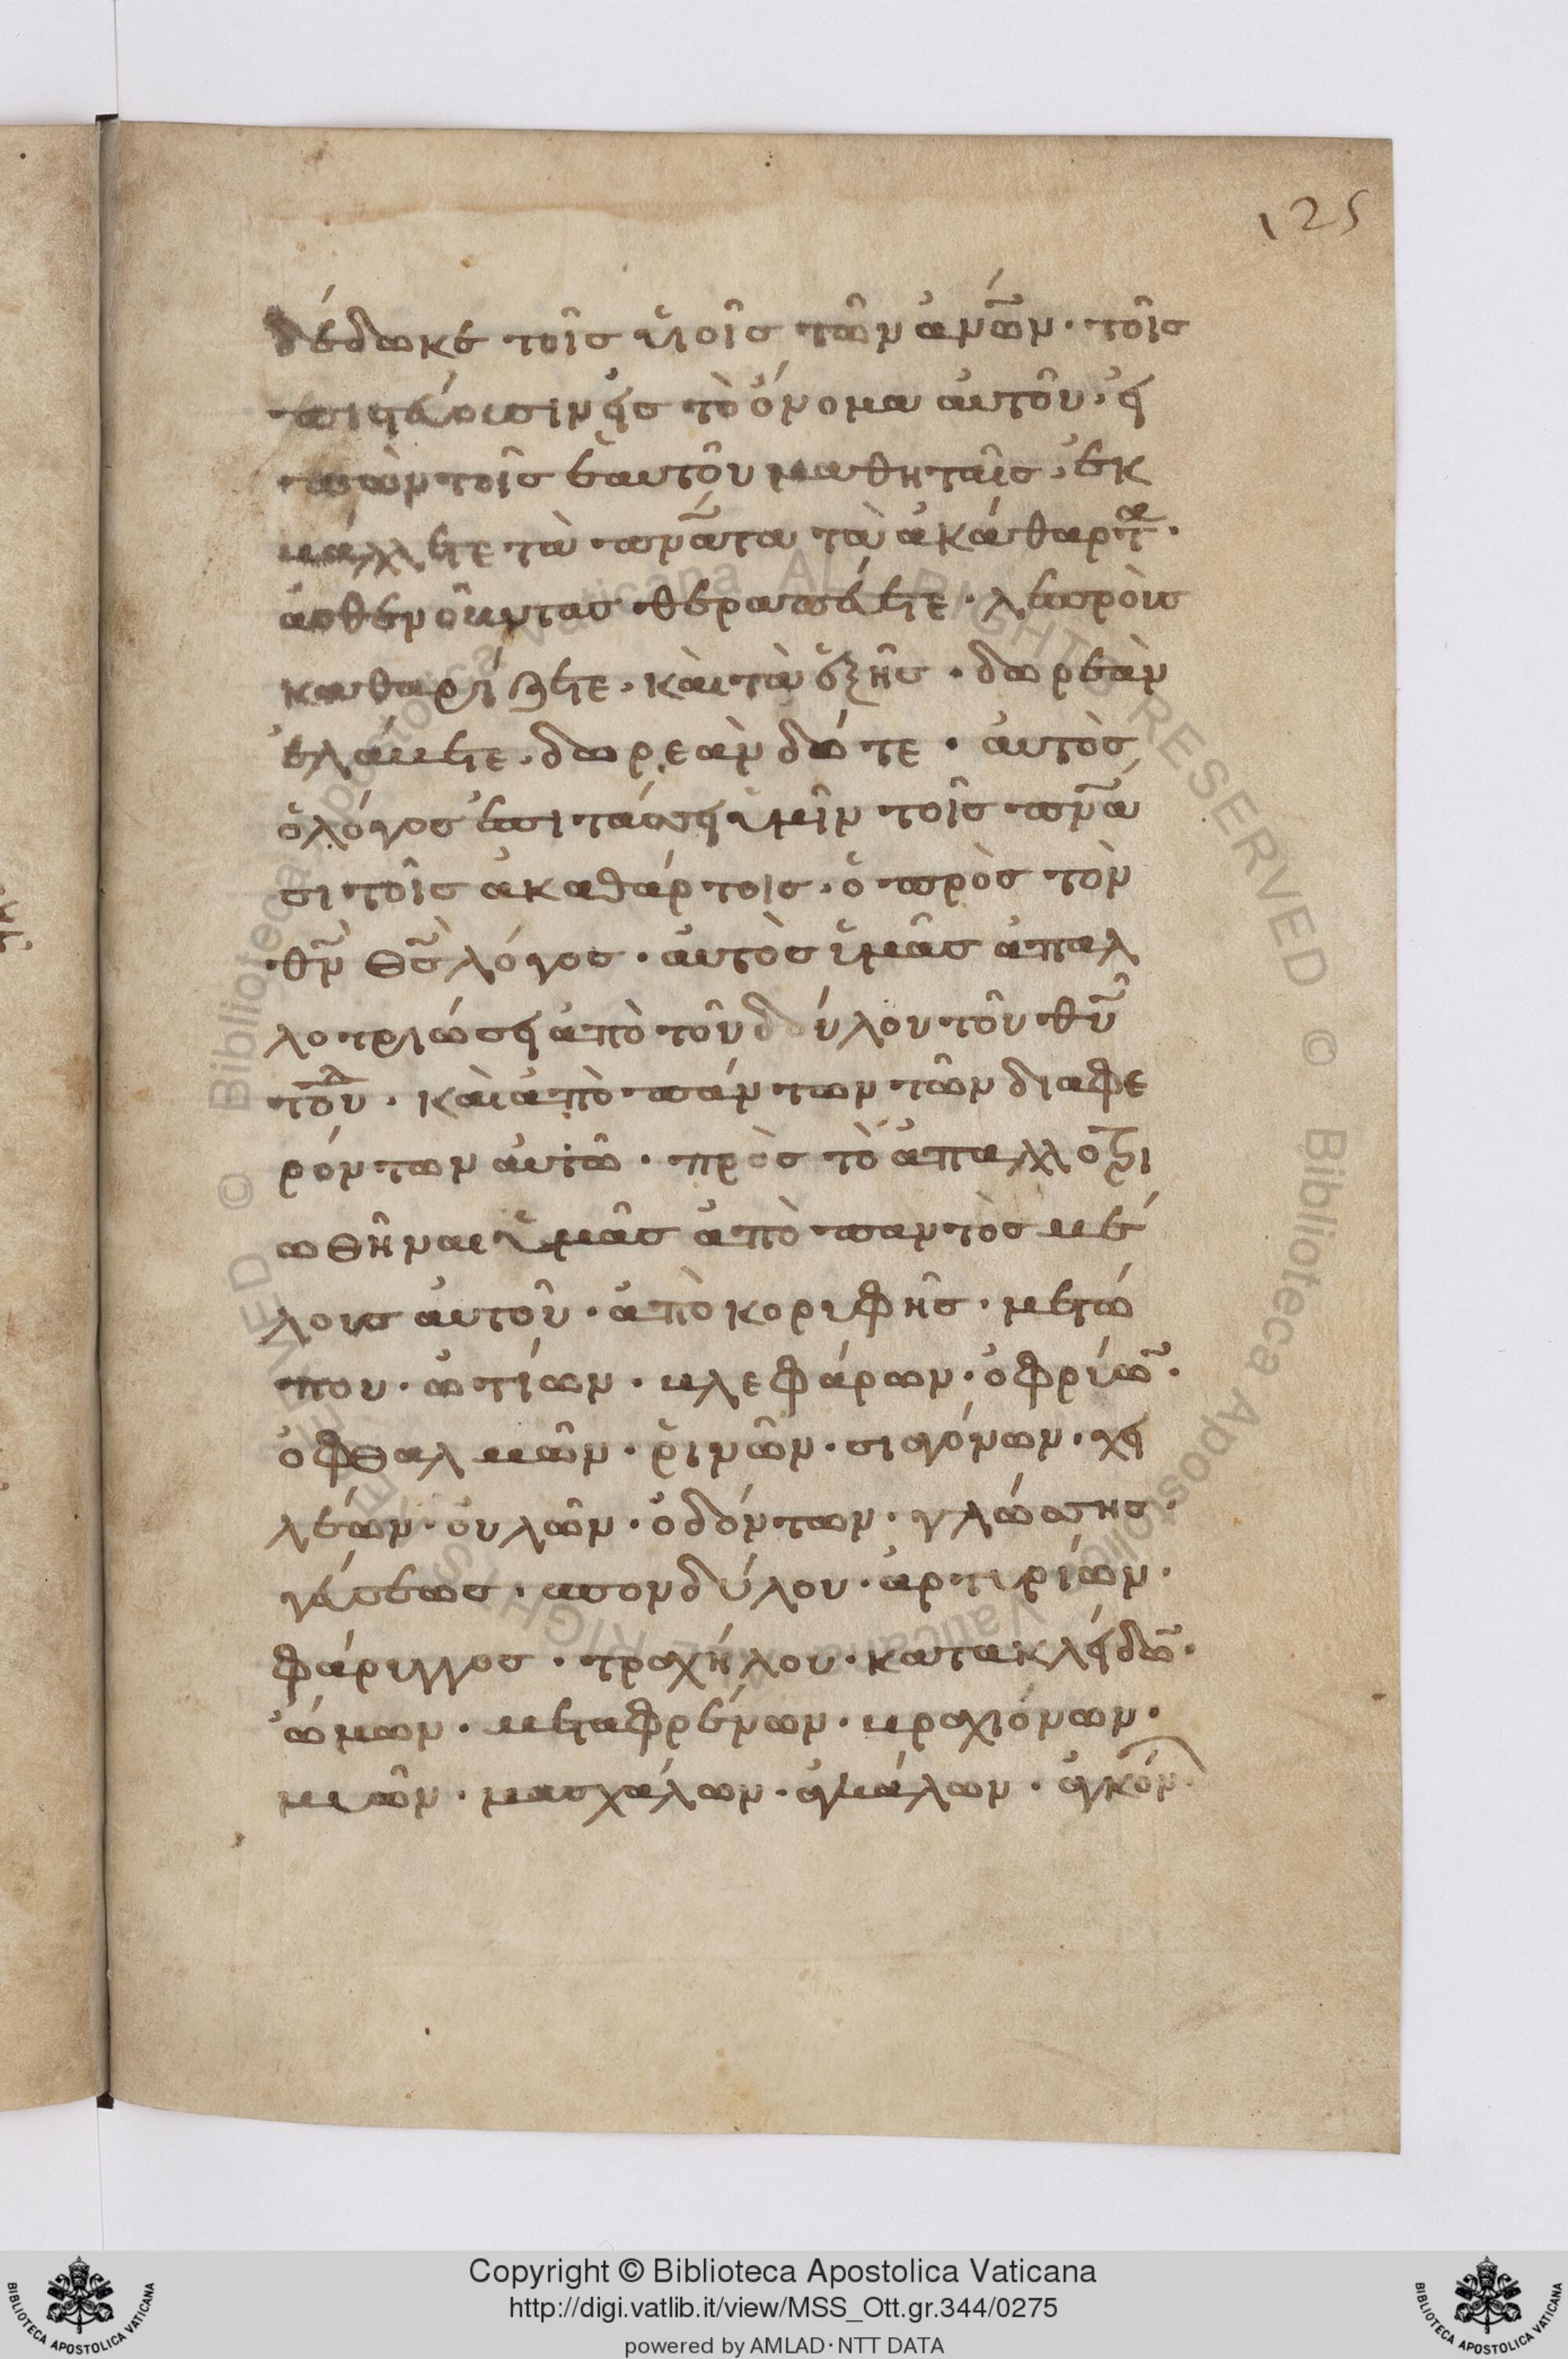 125
δέδωκε τοῖς ὑιοῖς τῶν ἀν̅ω̅ν· τοῖς
πιστέυουσιν εἰς τὸ ὄνομα ἀυτοῦ· εἰ
πὼν τοῖς ἑαυτοῦ μαθηταῖς· ἐκ
βάλλετε τὰ πν̅α̅τα τὰ ἀκάθαρτα·
ἀσθενοῦντας θεραπέυετε· λεπροὺς
καθαρίζετε· κὰι τὰ ἑξῆς· δωρεὰν
ἐλάβετε· δωρεὰν δότε· ἀυτὸς
ὁ λόγος ἐπιτάσσει ὑμῖν τοῖς πν̅ά
σι τοῖς ἀκαθάρτοις· ὁ πρὸς τὸν
θ̅ν̅ θ̅ς̅ λόγος· ἀυτὸς ὑμᾶς ἀπαλ
λοτριώσει ἀπὸ τοῦ δούλου τοῦ θ̅υ̅
τοῦδ· κὰι ἀπὸ πάντων τῶν διαφε
ρόντων ἀυτῶ· πρὸς τὸ ἀπαλλοτρι
ωθῆναι ὑμᾶς ἀπὸ παντὸς μέ
λους ἀυτοῦ· ἀπὸ κορυφῆς· μετώ
που· ὠτίων· βλεφάρων· ὀφρύω̅·
ὀφθαλμῶν· ῥινῶν· σιαγόνων· χει
λέων· ουλῶν· ὀδόντων· γλώσσης·
γέυσεως· σπονδύλου· ἀρτιριῶν·
φάρυγγος· τραχήλου· κατακλείδω̅·
ὤμων· μεταφρένων· βραχιόνων·
μυῶν· μασχάλων· ἀγκάλων· ἀγκόν·
Copyright © Biblioteca Apostolica Vaticana
http://digi.vatlib.it/view/MSS_Ott.gr.344/0275
powered by AMLAD·NTT DATA